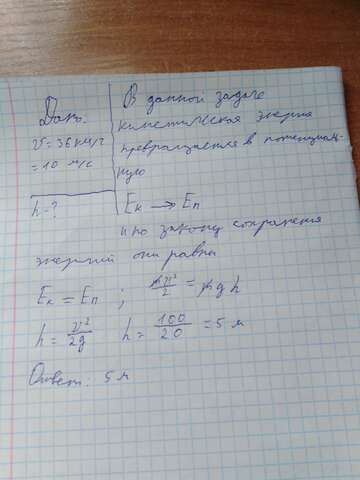 Дано:
V = 36 км/ч
= 10 м/с
h - ?
В данной задаче
кинетическая энергия
превращается в потенциаль-
ную
Eк → Eп
и по закону сохранения
энергий они равны
Eк = Eп ; mv²/2 = mgh
h = v²/2g h = 100/20 = 5 м
Ответ: 5 м